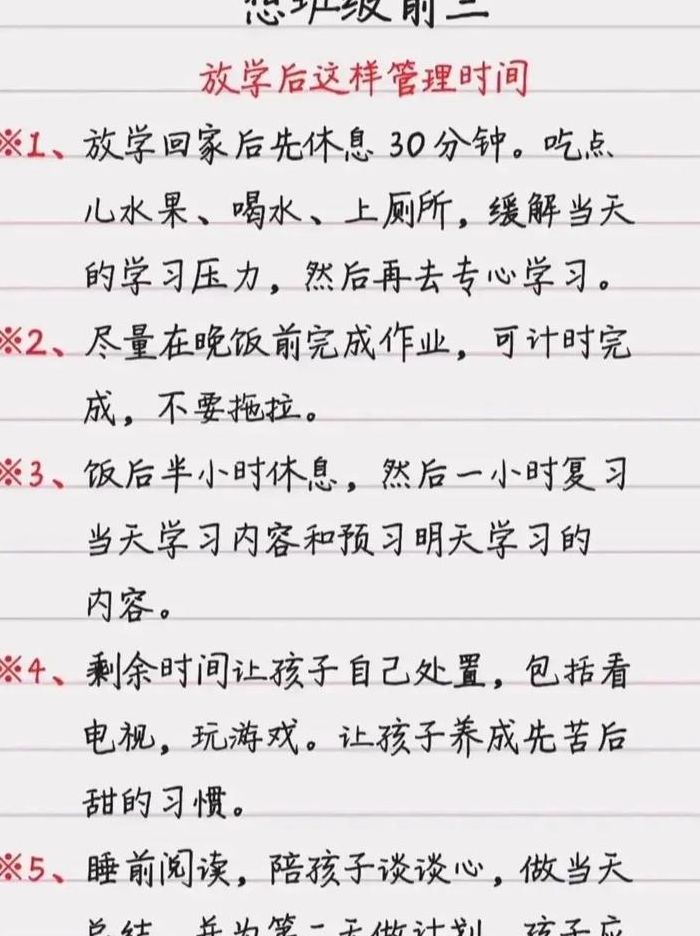 想班级前三
放学后这样管理时间
※1、放学回家后先休息30分钟。吃点
儿水果、喝水、上厕所，缓解当天
的学习压力，然后再去专心学习。
※2、尽量在晚饭前完成作业，可计时完
成，不要拖拉。
※3、饭后半小时休息，然后一小时复习
当天学习内容和预习明天学习的
内容。
※4、剩余时间让孩子自己处置，包括看
电视，玩游戏。让孩子养成先苦后
甜的习惯。
※5、睡前阅读，陪孩子谈谈心，做当天
总结，并为第二天做计划，孩子应